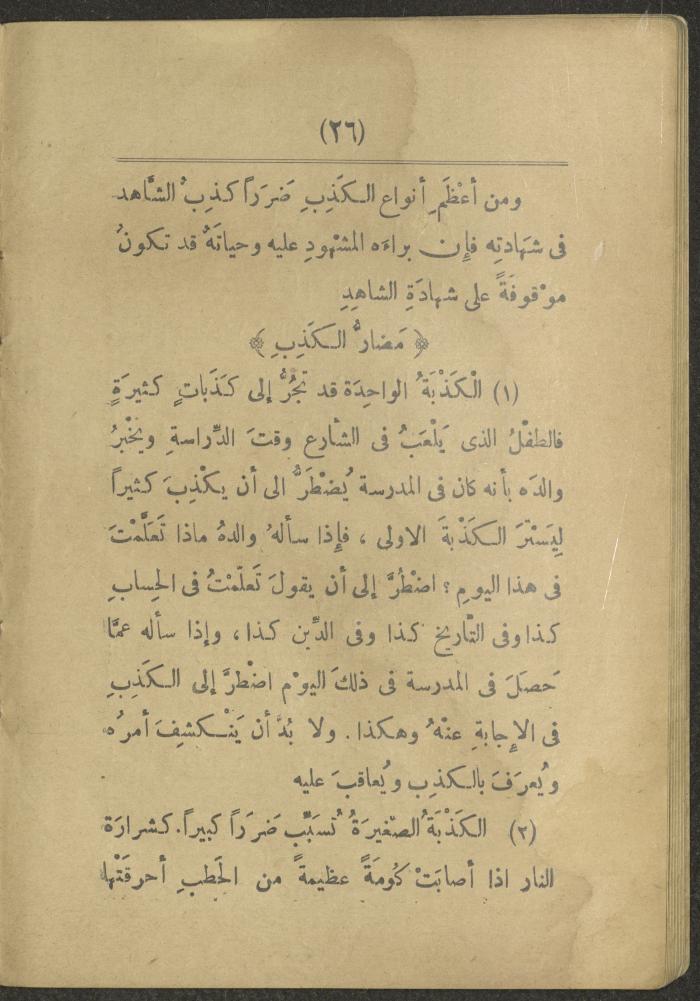 (٢٦)
ومن أعْظَمِ أنواع الـكَذِبِ ضَرَراً كذِبُ الشَّاهد
فى شهَادتِه فإِن براءه المشْهودِ عليه وحياتَهُ قد تكونُ
موْقوفَةً على شهادَةِ الشاهِدِ
﴿ مَضارُّ الـكَذِبِ ﴾
(١) الْكَذْبَةُ الواحِدَة قد تجُرُّ إلى كَذَباتٍ كثيرَةٍ
فالطفْلُ الذى يَلْعَبُ فى الشارع وقتَ الدِّراسةِ ويخْبرُ
والدَه بأنه كان فى المدرسة يُضْطَرُّ الى أن يكْذِبَ كثيراً
لِيَسْتَرَ الـكَذْبةَ الاولى ، فإِذا سألهُ والدهُ ماذا تَعَلَّمْتَ
فى هذا اليومِ ؟ اضْطُرَّ إلى أن يقولَ تَعلّمْتُ فى الحِسابِ
كذا وفى التَّاريخ كذا وفى الدِّين كذا ، وإذا سأله عمَّا
حَصَلَ فى المدرسة فى ذلكَ اليوْم اضْطرَّ إلى الـكَذِبِ
فى الإِجابةِ عنْهُ وهكذا . ولا بُدَّ أن يَنْـكشِفَ أمرُه
ويُعرَفَ بالـكذِب ويُعاقبَ عليه
(٢) الكَذْبَةُ الصّغيرَةُ تُسَبِّب ضَرَراً كبيراً . كشرارَة
النار اذا أصابَتْ كُومَةً عظيمةً من الحَطبِ أحرقَتْها